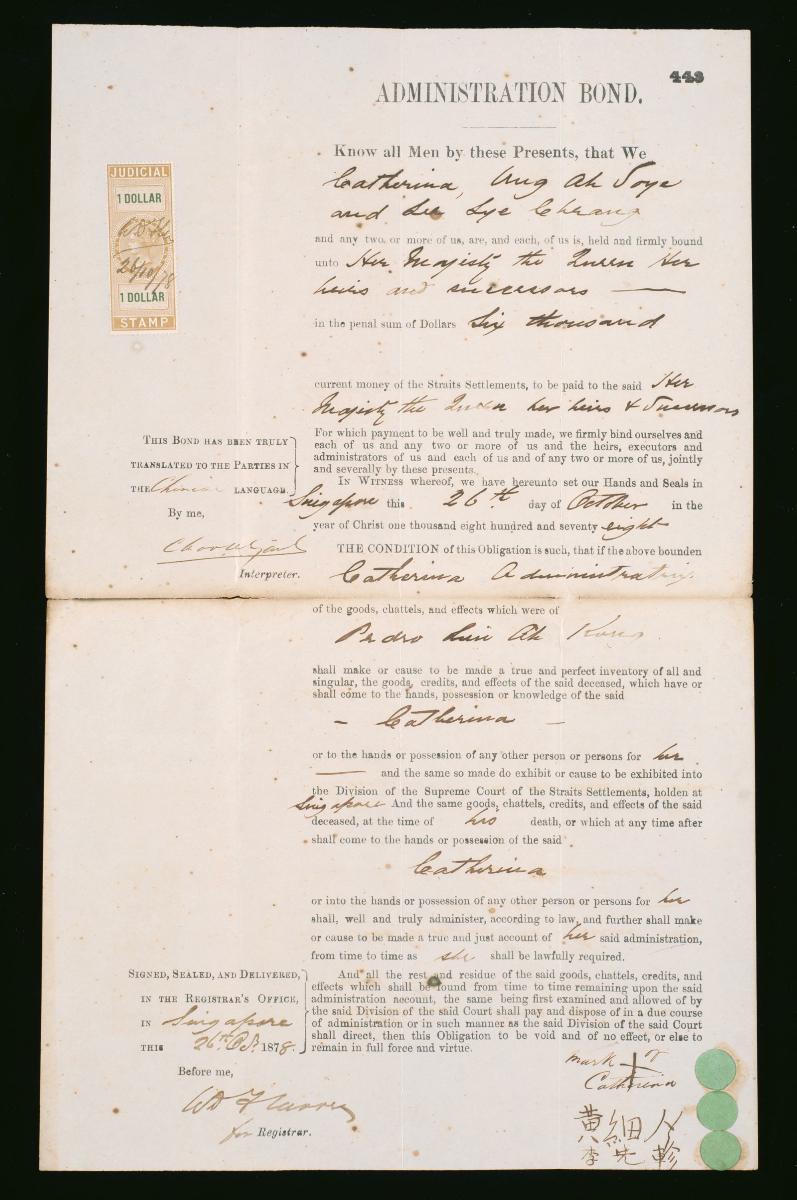 443
ADMINISTRATION BOND.
Know all Men by these Presents, that We
Catherina, Ung Ah Soye
and Lee Lye Cheang
and any two, or more of us, are, and each, of us is, held and firmly bound
unto Her Majesty the Queen Her
heirs and successors
in the penal sum of Dollars Six thousand
current money of the Straits Settlements, to be paid to the said Her
Majesty the Queen her heirs & Successors
For which payment to be well and truly made, we firmly bind ourselves and
each of us and any two or more of us and the heirs, executors and
administrators of us and each of us and of any two or more of us, jointly
and severally by these presents.
In Witness whereof, we have hereunto set our Hands and Seals in
Singapore this 26th day of October in the
year of Christ one thousand eight hundred and seventy eight
THE CONDITION of this Obligation is such, that if the above bounden
Catherina Administratrix
of the goods, chattels, and effects which were of
Pedro Lim Ah Kong
shall make or cause to be made a true and perfect inventory of all and
singular, the goods, credits, and effects of the said deceased, which have or
shall come to the hands, possession or knowledge of the said
– Catherina –
or to the hands or possession of any other person or persons for her
and the same so made do exhibit or cause to be exhibited into
the Division of the Supreme Court of the Straits Settlements, holden at
Singapore And the same goods, chattels, credits, and effects of the said
deceased, at the time of his death, or which at any time after
shall come to the hands or possession of the said
Catherina
or into the hands or possession of any other person or persons for her
shall, well and truly administer, according to law, and further shall make
or cause to be made a true and just account of her said administration,
from time to time as she shall be lawfully required.
And all the rest and residue of the said goods, chattels, credits, and
effects which shall be found from time to time remaining upon the said
administration account, the same being first examined and allowed of by
the said Division of the said Court shall pay and dispose of in a due course
of administration or in such manner as the said Division of the said Court
shall direct, then this Obligation to be void and of no effect, or else to
remain in full force and virtue.
mark of
Catherina
黃細
李先
JUDICIAL
1 DOLLAR
26/10/78
1 DOLLAR
STAMP
THIS BOND HAS BEEN TRULY
TRANSLATED TO THE PARTIES IN
THE Chinese LANGUAGE.
By me,
Interpreter.
SIGNED, SEALED, AND DELIVERED,
IN THE REGISTRAR'S OFFICE,
IN Singapore
THIS 26th Oct. 1878.
Before me,
for Registrar.